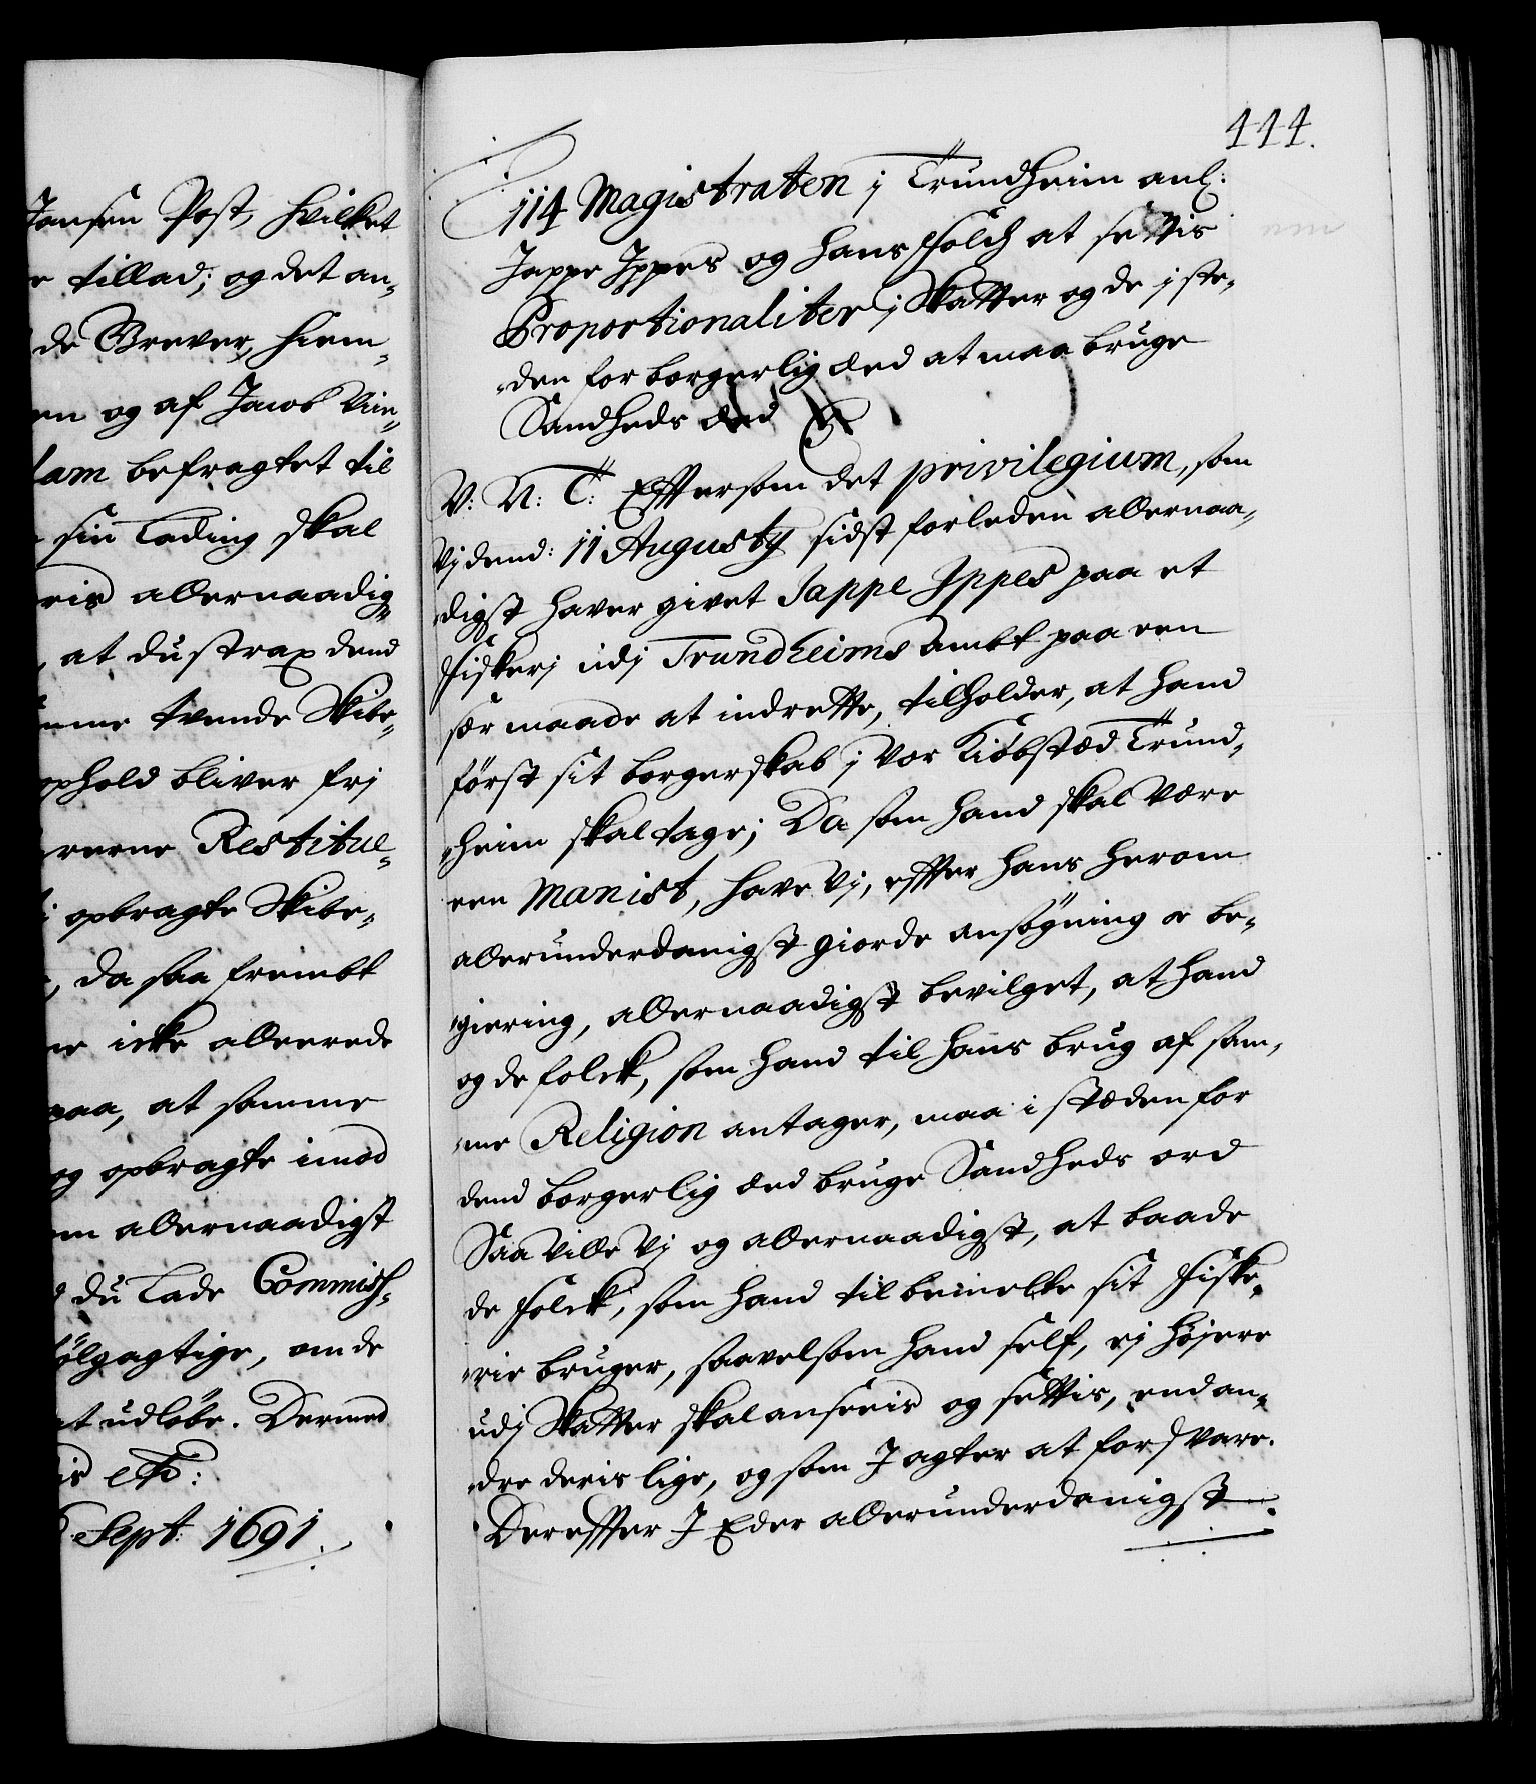 Jonsen Post, hvilket
e tillad; og det an-
de Brever, hiem-
en og af Jacob Vin-
lam befragtet til
sin Lading skal
ris allernaadig-
, at du strax dend
mme tvende Skibe-
ophold bliver frj
rerne Restitue-
opbragte Skibe-
, da saa frembt
ne icke allerede
paa, at samme
og opbragte imod
em allernaadigst
du lade Commiss-
ölgagtige, om de
at udløbe. Dermed
is etc:
Sept: 1691
444.
114 Magistraten i Trundheim anl:
Jappe Ippes og hans Folch at settis
Proportionaliter i Skatter og de i ste-
den for borgerlig æed at maa bruge
Sandheds æed
V: N: T: Effter som det privilegium, som
Vj dend: 11 Augustij sidst forleden allernaa-
digst hafver givet Jappe Ippes paa et
Fiskerj udj Trundheims ambt paa een
sær maade at indrette, tilholder, at hand
först sit borgerskab i vor Kiöbstæd Trund-
heim skal tage; Da som hand skal være
een Manist, have vj, effter hans herom
allerunderdanigst giorde ansögning oc be-
giering, allernaadigst bevilget, at hand
og de folck, som hand til hans brug af sam-
me Religion antager, maa i stæden for
dend borgerlig æed bruge Sandheds ord
Saa ville vj og allernaadigst, at baade
de Folck, som hand til bemelte sit Fiske-
rie bruger, saavelsom hand self, ej höjere
udj Skatter skal anseeis og settis, end an-
dre deris lige, og som J agter at forsvare.
Dereffter J Eder allerunderdanigst